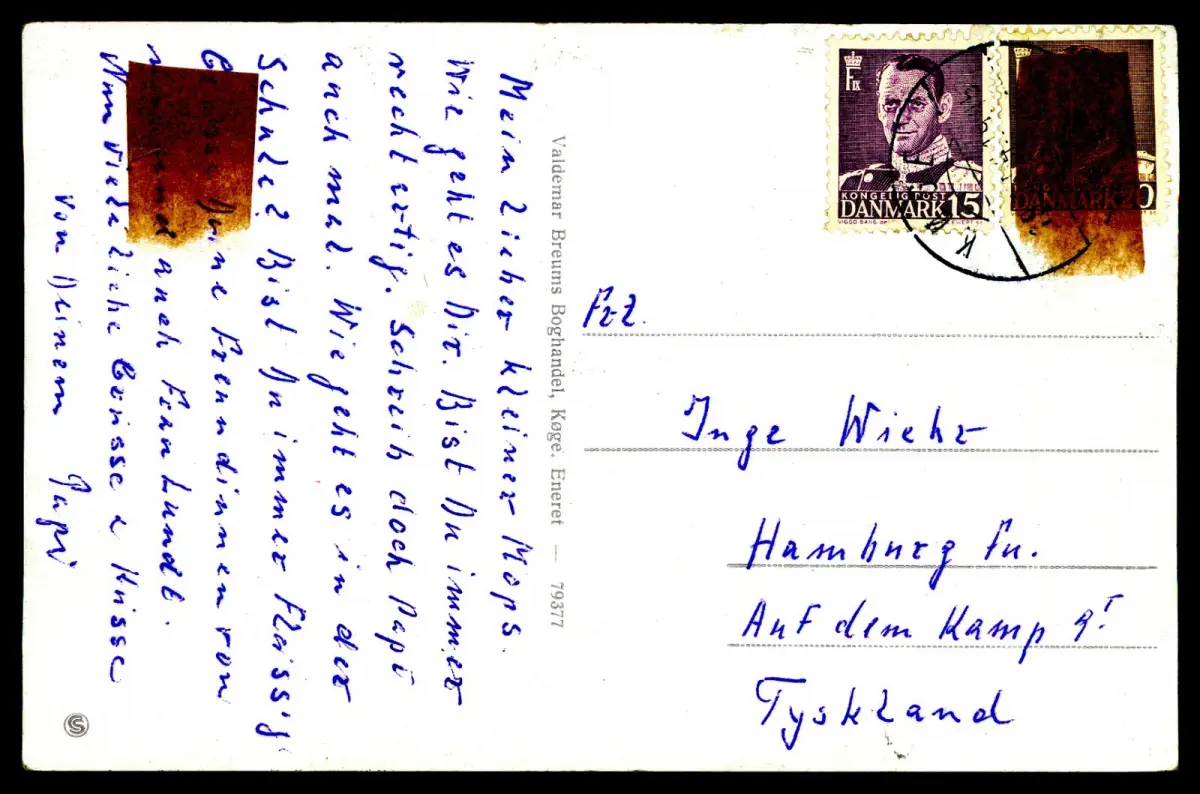 Mein Lieber kleiner Mops.
Wie geht es Dir. Bist Du immer
recht artig. Schreib doch Papi
auch mal. Wie geht es in der
Schule? Bist Du immer Fleissig
Grüsse Deine Freundinnen von
auch Frau Lundt.
Nun viele liebe Grüsse & Küsse
von Deinem Papi
Valdemar Breums Boghandel, Køge. Eneret — 79377
S
F IX
KONGELIG POST
DANMARK 15
VIGGO BANG
DANMARK 20
Frl.
Inge Wiehr
Hamburg Fu.
Auf dem Kamp 9 I
Tyskland